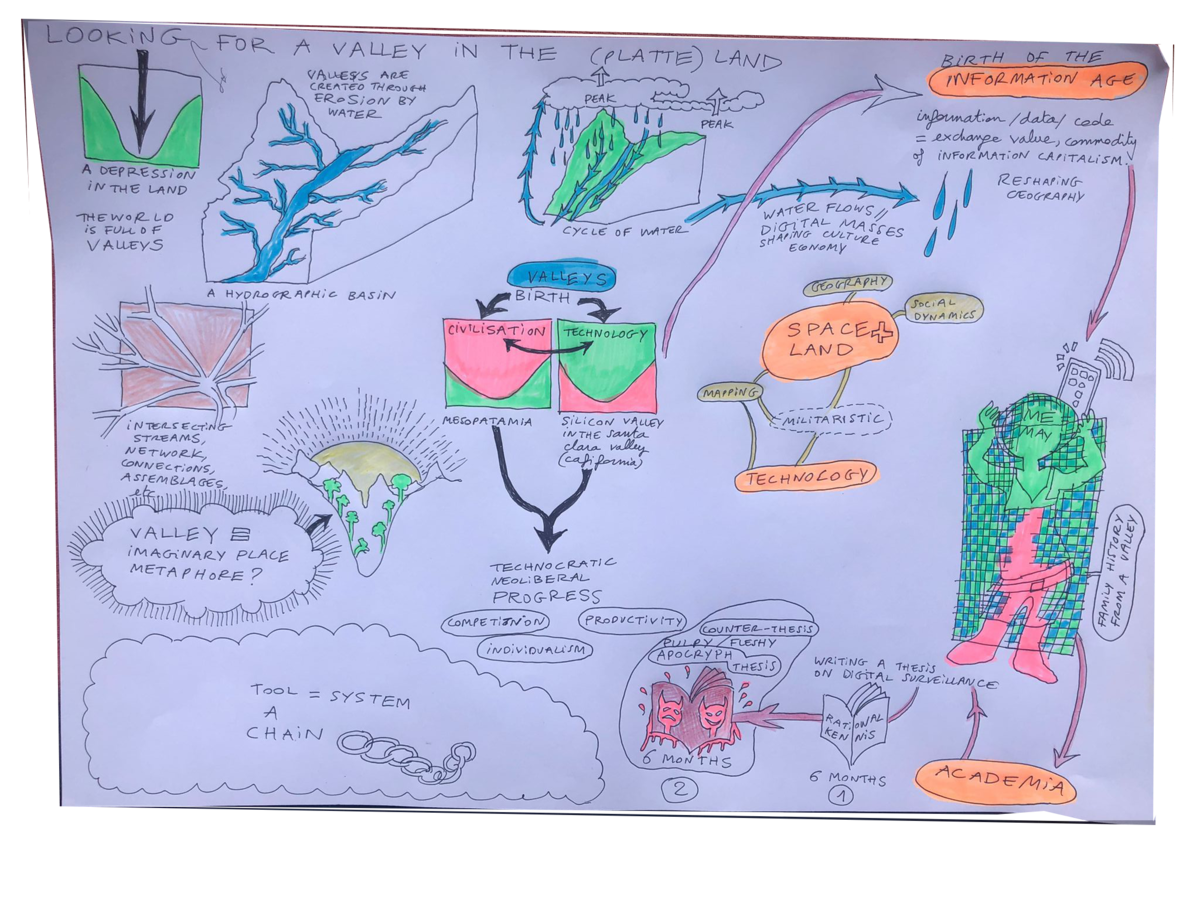 LOOKING FOR A VALLEY IN THE (PLATTE) LAND
A DEPRESSION
IN THE LAND
THE WORLD
IS FULL OF
VALLEYS
VALLEYS ARE
CREATED THROUGH
EROSION BY
WATER
A HYDROGRAPHIC BASIN
PEAK
PEAK
CYCLE OF WATER
WATER FLOWS //
DIGITAL MASSES
SHAPING CULTURE
ECONOMY
BIRTH OF THE
INFORMATION AGE
information/data/code
= exchange value, commodity
of INFORMATION CAPITALISM.
RESHAPING
GEOGRAPHY
INTERSECTING
STREAMS,
NETWORK,
CONNECTIONS,
ASSEMBLAGES,
etc
VALLEY =
IMAGINARY PLACE
METAPHORE?
VALLEYS
BIRTH
CIVILISATION
TECHNOLOGY
MESOPATAMIA
SILICON VALLEY
IN THE Santa
clara valley
(california)
TECHNOCRATIC
NEOLIBERAL
PROGRESS
COMPETITION
PRODUCTIVITY
INDIVIDUALISM
GEOGRAPHY
SOCIAL
DYNAMICS
SPACE +
LAND
MAPPING
MILITARISTIC
TECHNOLOGY
ME
MAY
FAMILY HISTORY
FROM A VALLEY
TOOL = SYSTEM
A
CHAIN
COUNTER-THESIS
PULPY/FLESHY
APOCRYPH
THESIS
6 MONTHS
2
WRITING A THESIS
ON DIGITAL SURVEILLANCE
RATIONAL
KENNIS
6 MONTHS
1
ACADEMIA